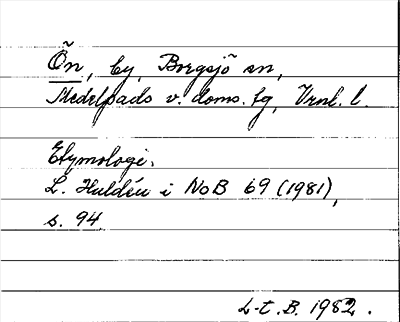 Õn, by, Borgsjõ sn,
Medelpads v. doms. fg, Vrnl. l.
Etymologi.
L. Huldén i NoB 69 (1981),
s. 94
L-t. B. 1982.